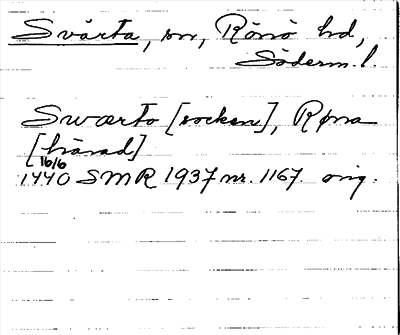 Svärta, sn, Rönö hd,
Söderm. l.
Swærto [socken], Røna
[härad]
16/6
1440 SMR 1937 nr. 1167. orig.